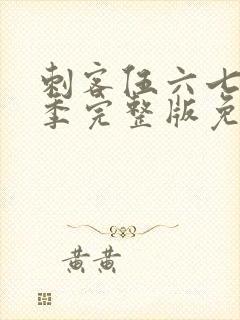 刺客伍六七
季完整版免
黄黄